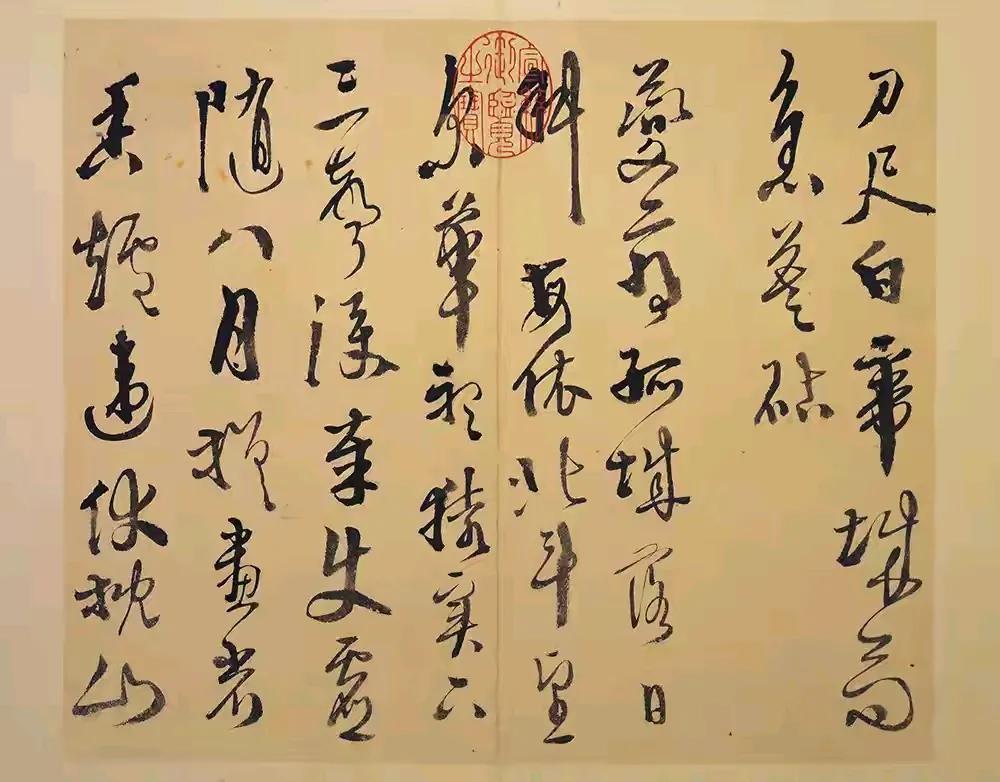 刀尺白帝城高
急暮砧
夔府孤城落日
斜每依北斗望
京華聽猿實下
三聲淚奉使虛
隨八月槎畫省
香爐違伏枕山
宣統御覽之寶